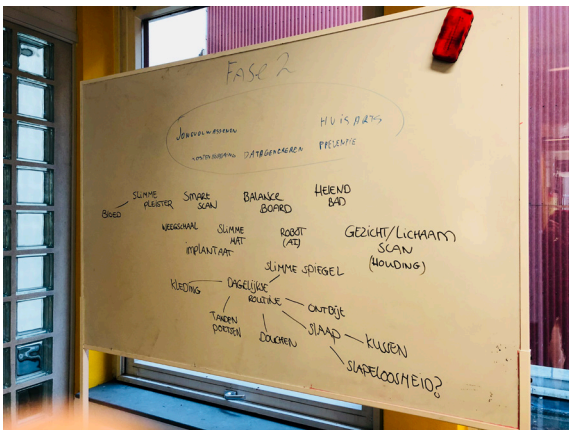 FASE 2
JONGVOLWASSENEN
HUISARTS
KOSTENBESPARING DATAGENEREREN PREVENTIE
SLIMME
PLEISTER
SMART
SCAN
BALANCE
BOARD
HELEND
BAD
BLOED
WEEGSCHAAL
SLIMME
MAT
ROBOT
(AI)
GEZICHT/LICHAAM
SCAN
(HOUDING)
IMPLANTAAT
SLIMME SPIEGEL
KLEDING
DAGELIJKSE
ROUTINE
ONTBIJT
TANDEN
POETSEN
DOUCHEN
SLAAP
KUSSEN
SLAPELOOSHEID?